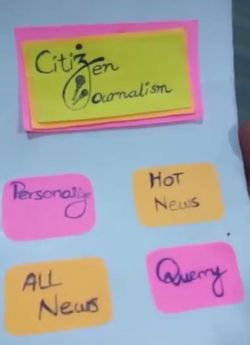 Citizen
Journalism
Personalize
HOT
News
ALL
News
Querry